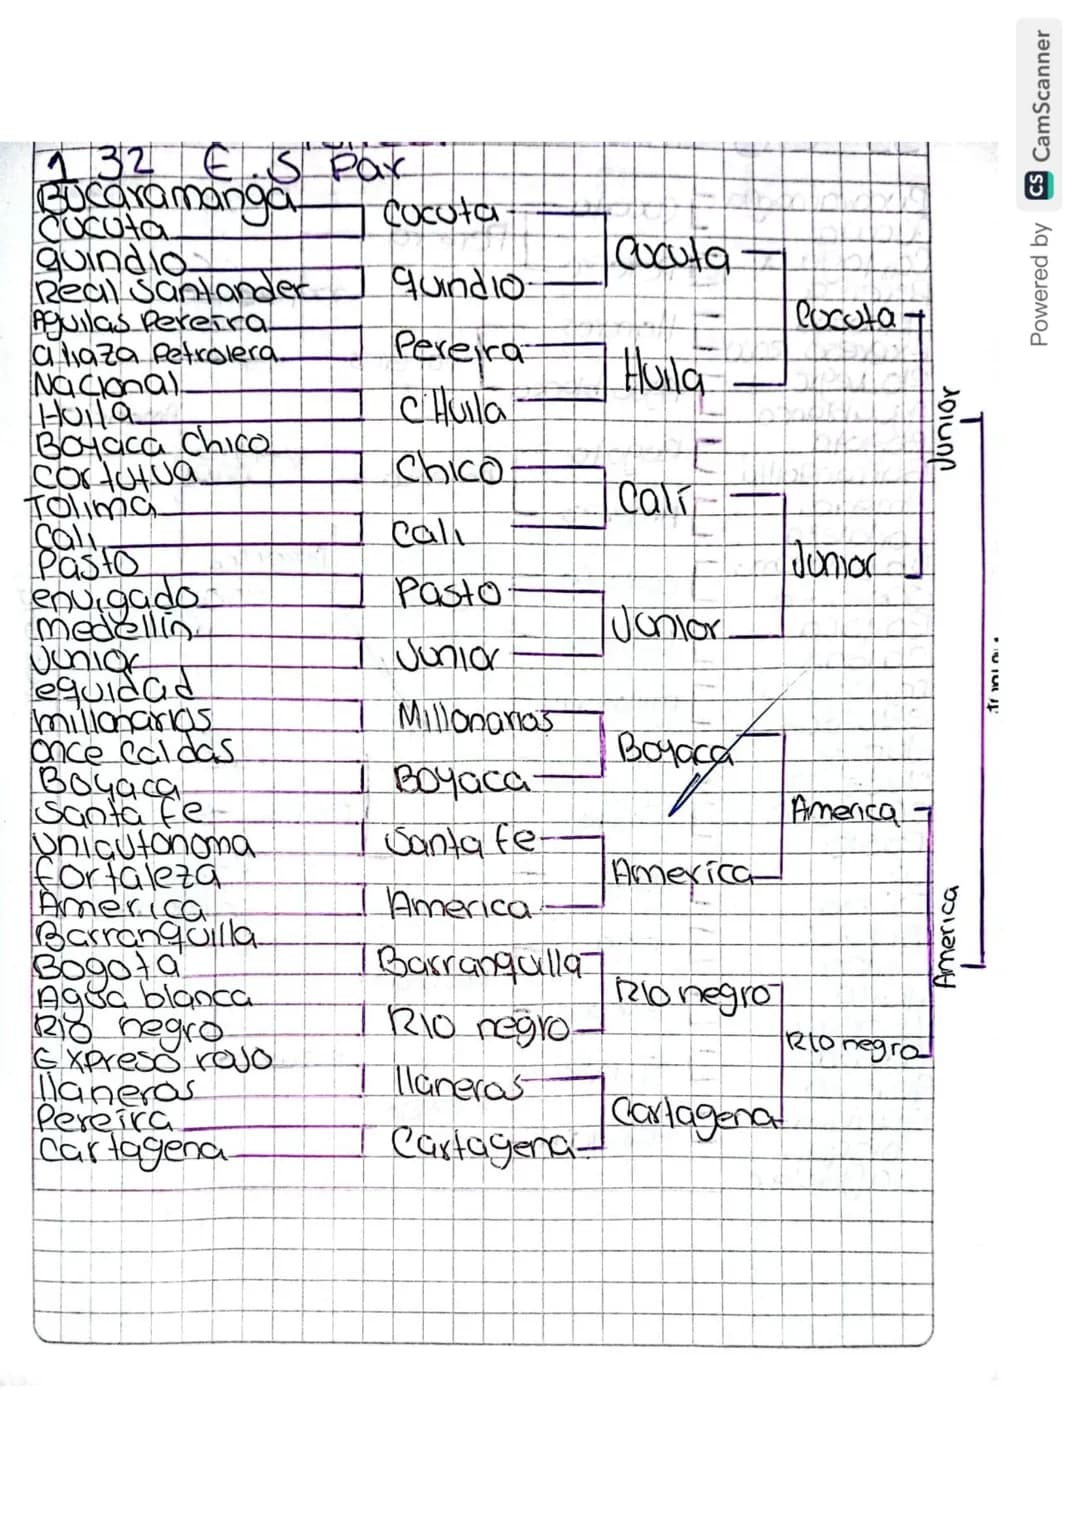 1 32 E.S Par
Bucaramanga
Cucuta
quindio
Real Santander
Aguilas Pereira
aliaza Petrolera
Nacional
Huila
Boyaca Chico
Cortulua
Tolima
Cali
Pasto
envigado
medellin
Junior
equidad
millonarios
once Caldas
Boyaca
Santa fe
uniautonoma
fortaleza
America
Barranquilla
Bogota
Agua blanca
Rio negro
Expreso rojo
llaneros
Pereira
Cartagena
Cucuta
quindio
Pereira
C Huila
Chico
Cali
Pasto
Junior
Millonarios
Boyaca
Santa fe
America
Barranquilla
Rio negro
llaneros
Cartagena
Cucuta
Huila
Cali
Junior
Boyaca
America
Rio negro
Cartagena
Cucuta
Junior
America
Rio negro
Junior
America
Powered by CS CamScanner